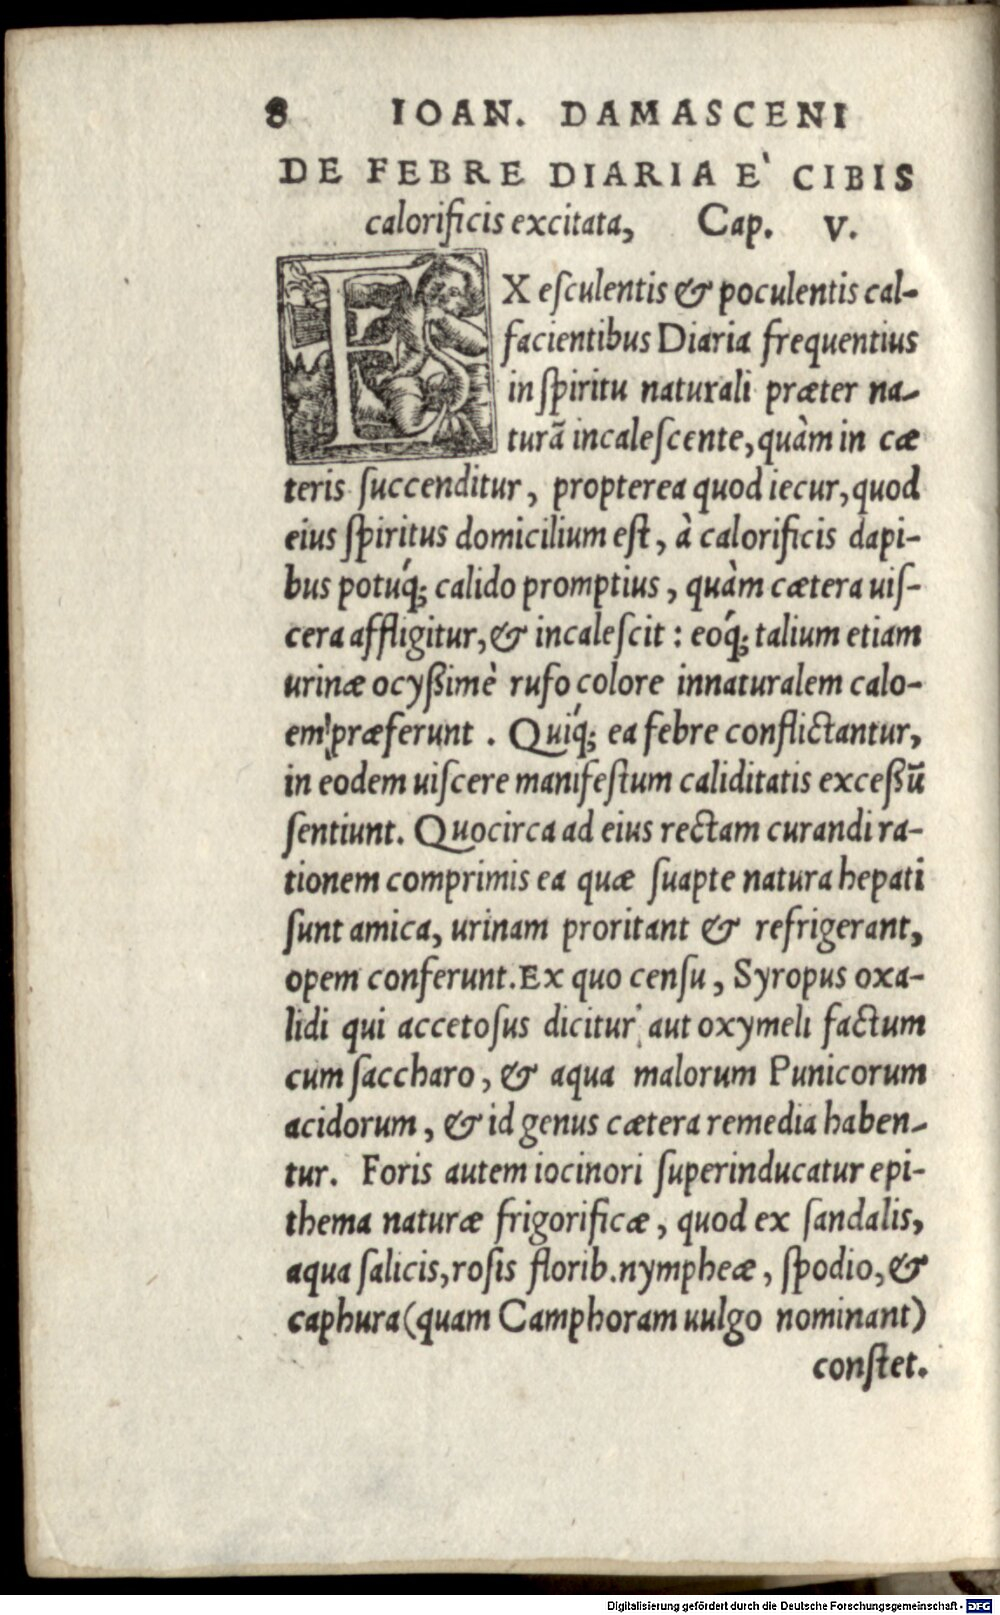 8 IOAN. DAMASCENI
DE FEBRE DIARIA E` CIBIS
calorificis excitata, Cap. V.
EX eſculentis & poculentis cal-
facientibus Diaria frequentius
in ſpiritu naturali præter na-
turã incaleſcente, quàm in cæ
teris ſuccenditur, propterea quod iecur, quod
eius ſpiritus domicilium eſt, à calorificis dapi-
bus potúq; calido promptius, quàm cætera uiſ-
cera affligitur, & incaleſcit: eóq; talium etiam
urinæ ocyßimè rufo colore innaturalem calo-
em præferunt. Quíq; ea febre conflictantur,
in eodem uiſcere manifeſtum caliditatis exceßũ
ſentiunt. Quocirca ad eius rectam curandi ra-
tionem comprimis ea quæ ſuapte natura hepati
ſunt amica, urinam proritant & refrigerant,
opem conferunt. Ex quo cenſu, Syropus oxa-
lidi qui accetoſus dicitur, aut oxymeli factum
cum ſaccharo, & aqua malorum Punicorum
acidorum, & id genus cætera remedia haben-
tur. Foris autem iocinori ſuperinducatur epi-
thema naturæ frigorificæ, quod ex ſandalis,
aqua ſalicis, roſis florib. nympheæ, ſpodio, &
caphura (quam Camphoram uulgo nominant)
conſtet.
Digitalisierung gefördert durch die Deutsche Forschungsgemeinschaft - DFG